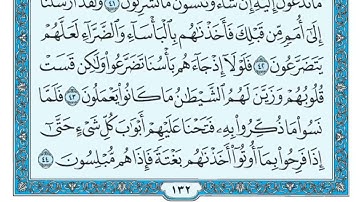 مَا تَدْعُونَ إِلَيْهِ إِن شَاءَ وَتَنسَوْنَ مَا تُشْرِكُونَ ٤١ وَلَقَدْ أَرْسَلْنَا
إِلَىٰ أُمَمٍ مِّن قَبْلِكَ فَأَخَذْنَاهُم بِالْبَأْسَاءِ وَالضَّرَّاءِ لَعَلَّهُمْ
يَتَضَرَّعُونَ ٤٢ فَلَوْلَا إِذْ جَاءَهُم بَأْسُنَا تَضَرَّعُوا وَلَٰكِن قَسَتْ
قُلُوبُهُمْ وَزَيَّنَ لَهُمُ الشَّيْطَانُ مَا كَانُوا يَعْمَلُونَ ٤٣ فَلَمَّا
نَسُوا مَا ذُكِّرُوا بِهِ فَتَحْنَا عَلَيْهِمْ أَبْوَابَ كُلِّ شَيْءٍ حَتَّىٰ
إِذَا فَرِحُوا بِمَا أُوتُوا أَخَذْنَاهُم بَغْتَةً فَإِذَا هُم مُّبْلِسُونَ ٤٤
١٣٢